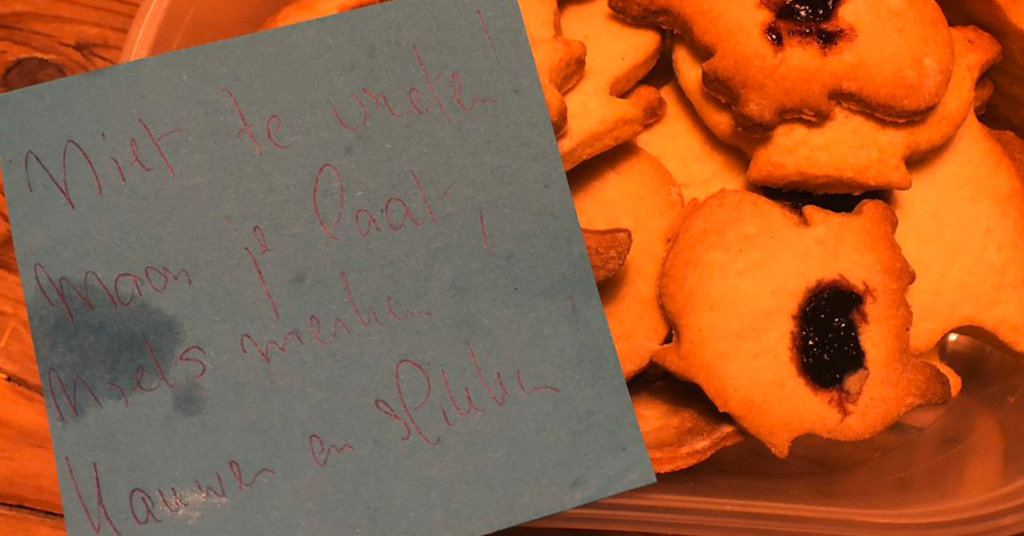 Niet te vreten!
Maar je laat
Niets merken!
Kauwen en slikken!